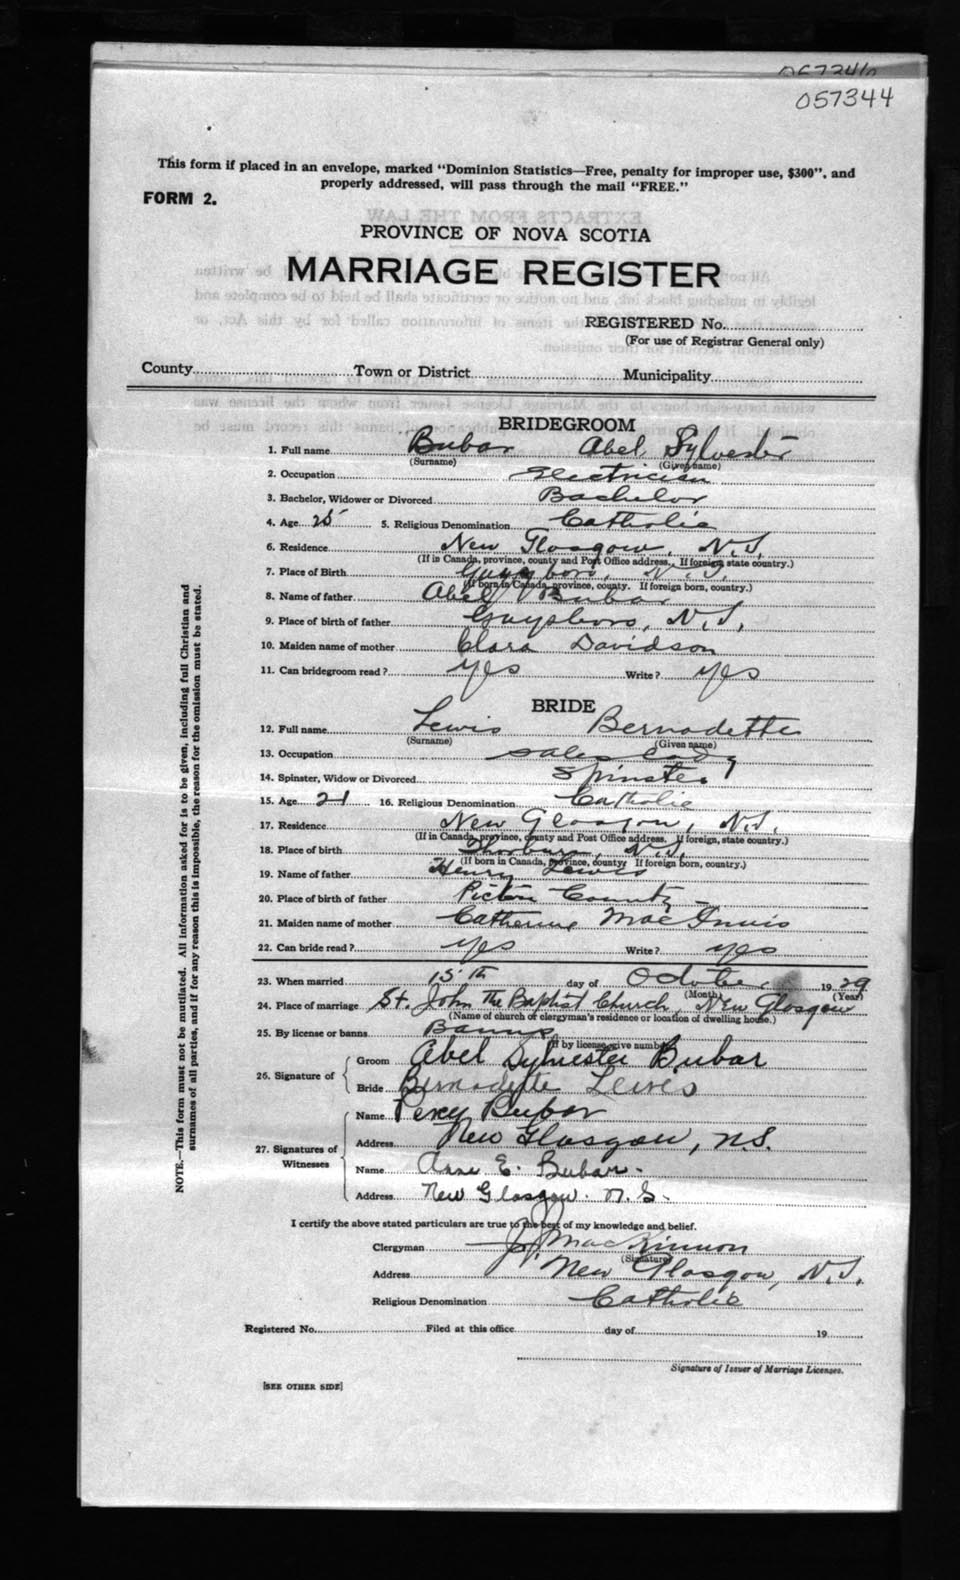 057344
This form if placed in an envelope, marked "Dominion Statistics—Free, penalty for improper use, $300", and
properly addressed, will pass through the mail "FREE."
FORM 2.
EXTRACTS FROM THE LAW
PROVINCE OF NOVA SCOTIA
MARRIAGE REGISTER
REGISTERED No.
(For use of Registrar General only)
County Town or District Municipality
BRIDEGROOM
1. Full name Bubar Abel Sylvester
(Surname) (Given name)
2. Occupation Electrician
3. Bachelor, Widower or Divorced Bachelor
4. Age 25 5. Religious Denomination Catholic
6. Residence New Glasgow, N.S.
(If in Canada, province, county and Post Office address. If foreign state country.)
7. Place of Birth Guysboro, N.S.
(If born in Canada, province, county. If foreign born, country.)
8. Name of father Abel Bubar
9. Place of birth of father Guysboro, N.S.
10. Maiden name of mother Clara Davidson
11. Can bridegroom read? yes Write? yes
BRIDE
12. Full name Lewis Bernadette
(Surname) (Given name)
13. Occupation sales lady
14. Spinster, Widow or Divorced Spinster
15. Age 21 16. Religious Denomination Catholic
17. Residence New Glasgow, N.S.
(If in Canada, province, county and Post Office address. If foreign, state country.)
18. Place of birth Thorburn, N.S.
(If born in Canada, province, county. If foreign born, country.)
19. Name of father Henry Lewis
20. Place of birth of father Pictou County
21. Maiden name of mother Catherine MacInnis
22. Can bride read? yes Write? yes
23. When married 15th day of October 1929
(Month) (Year)
24. Place of marriage St. John The Baptist Church, New Glasgow
(Name of church or clergyman's residence or location of dwelling house.)
25. By license or banns Banns
(If by license give number)
26. Signature of Groom Abel Sylvester Bubar
Bride Bernadette Lewis
27. Signatures of Witnesses Name Percy Bubar
Address New Glasgow, N.S.
Name Anne E. Bubar.
Address New Glasgow. N.S.
I certify the above stated particulars are true to the best of my knowledge and belief.
Clergyman MacKinnon
(Signature)
Address New Glasgow, N.S.
Religious Denomination Catholic
Registered No. Filed at this office day of 19
Signature of Issuer of Marriage Licenses.
[SEE OTHER SIDE]
NOTE.—This form must not be mutilated. All information asked for is to be given, including full Christian and
surnames of all parties, and if for any reason this is impossible, the reason for the omission must be stated.